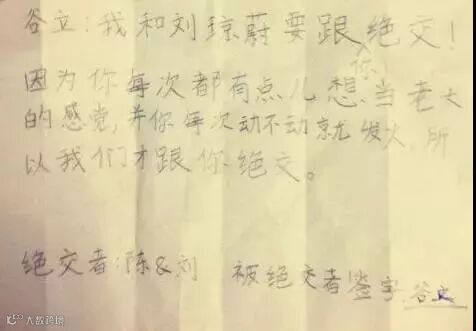 谷立:我和刘琼蔚要跟你绝交!
因为你每次都有点儿想当老大
的感觉,并你每次动不动就发火,所
以我们才跟你绝交。
绝交者:陈&刘 被绝交者签字:谷立
大数跨境